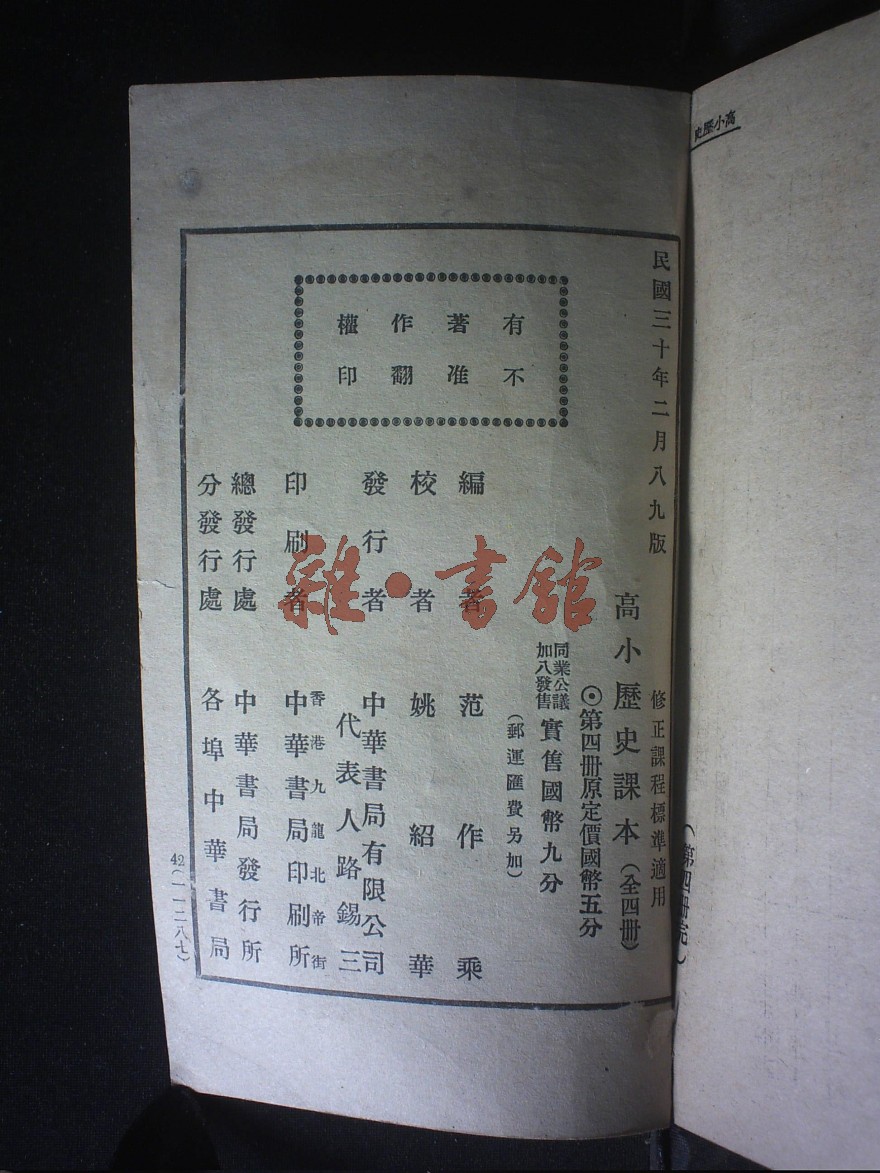 高小歷史
(第四册完)
民國三十年二月八九版
修正課程標準適用
高小歷史課本(全四册)
⊙第四册原定價國幣五分
同業公議
加八發售
實售國幣九分
(郵運匯費另加)
有著作權
不准翻印
編著者 范作乘
校者 姚紹華
發行者 中華書局有限公司
代表人路錫三
印刷者 香港九龍北帝街
中華書局印刷所
總發行處 中華書局發行所
分發行處 各埠中華書局
42(一一二八七)
雜·書館